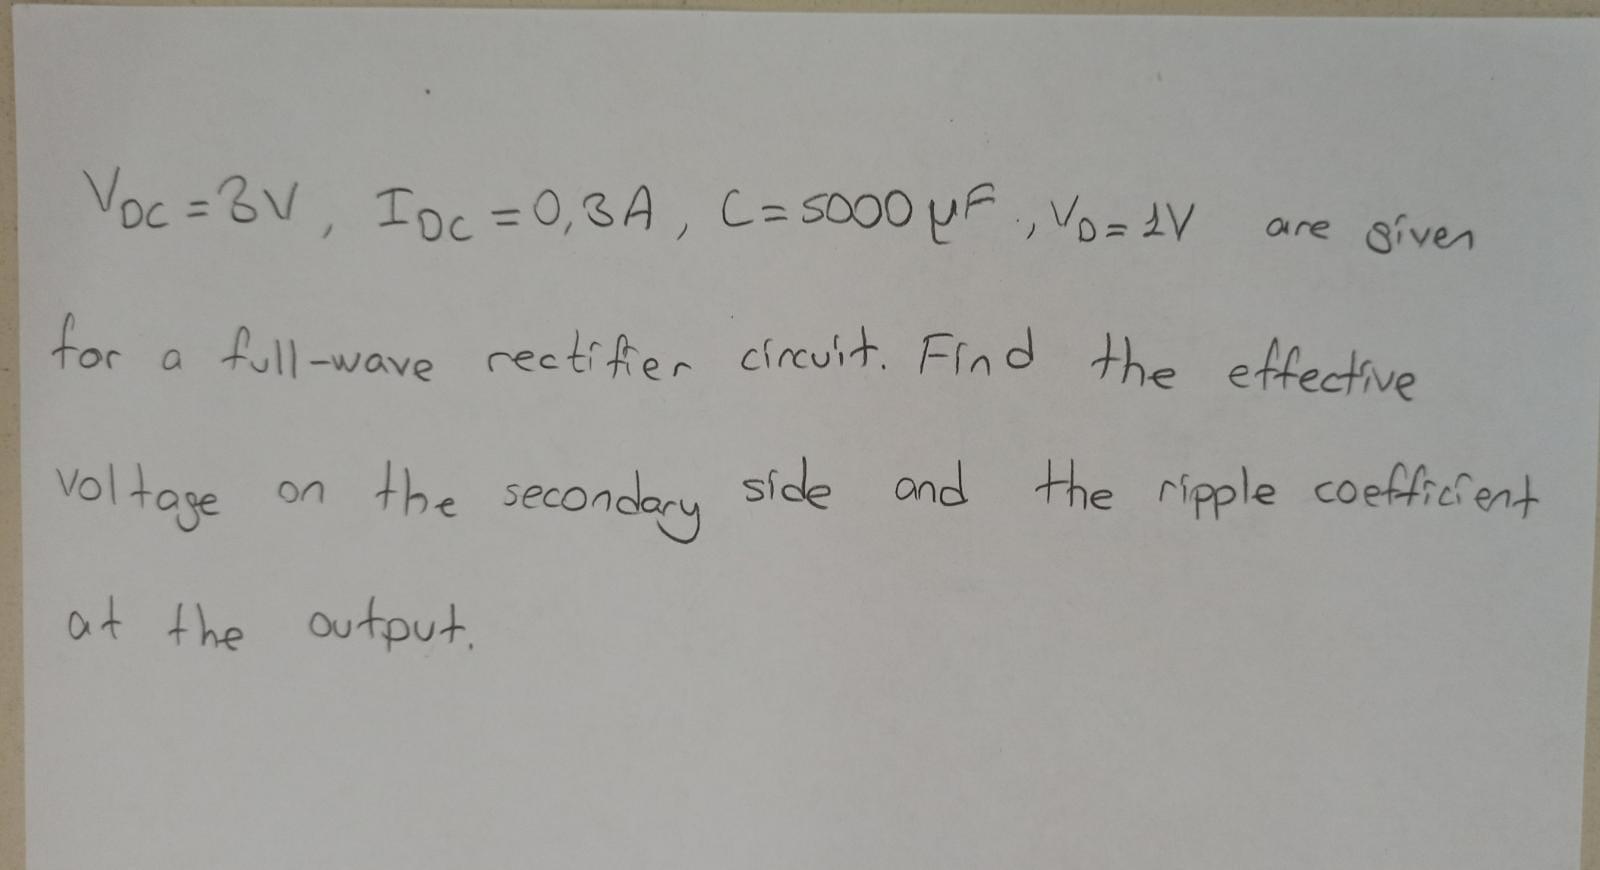 VDC = 3V, IDC = 0,3A, C = 5000 µF., VD = 1V are given
for a full-wave rectifier circuit. Find the effective
voltage on the secondary side and the ripple coefficient
at the output.